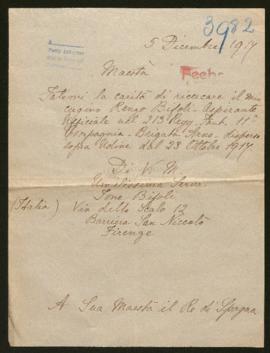 3982
5 Dicembre 1917
Maestà
Fatemi la carità di ricercare il mio
cugino Renzo Bifoli - Aspirante
Ufficiale nel 213 Regg. Fant. 11ª
Compagnia - Brigata Arno - disperso
sopra Udine dal 28 Ottobre 1917
Di V. M.
Umilissima Serva
Bifoli
(Italia) Via dello Scalo 12
Barriera San Niccolò
Firenze
A Sua Maestà il Re di Spagna